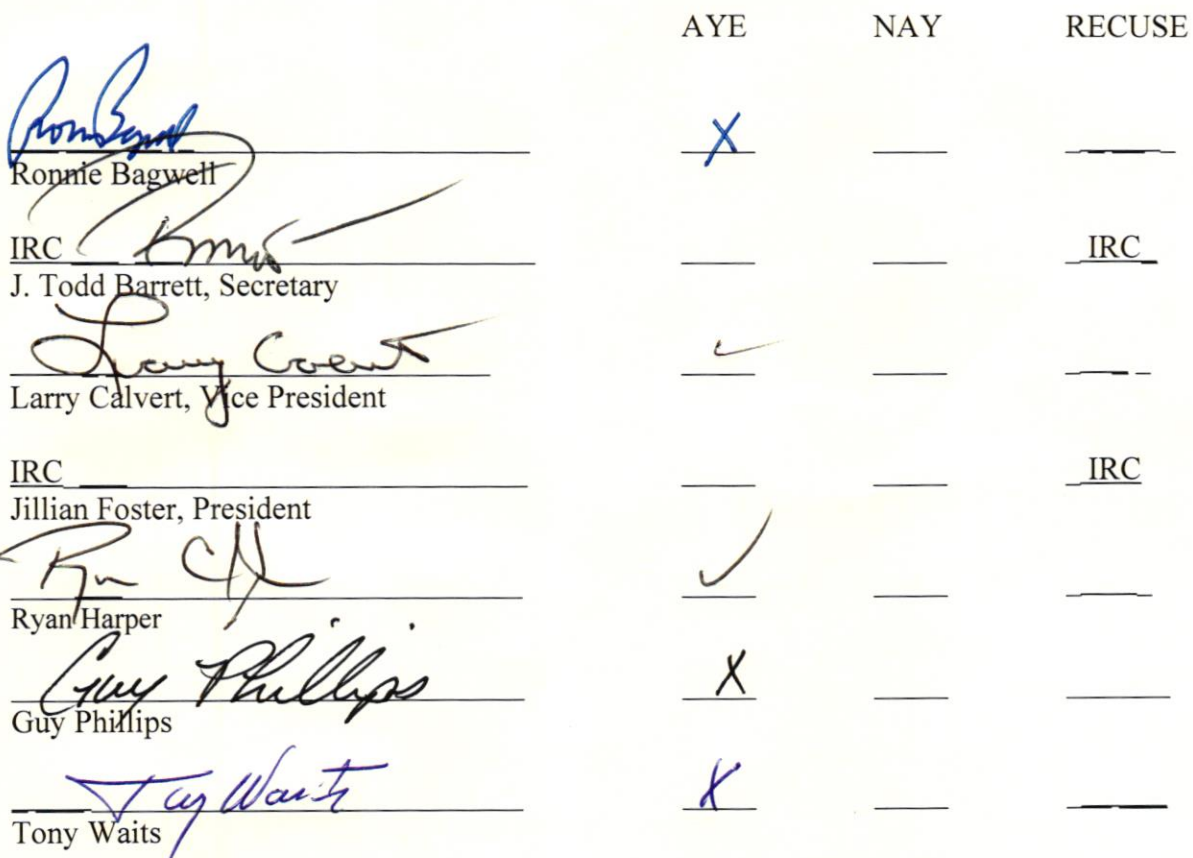 AYE NAY RECUSE
X
Ronnie Bagwell
IRC IRC
J. Todd Barrett, Secretary
Larry Calvert ✓
Larry Calvert, Vice President
IRC IRC
Jillian Foster, President
✓
Ryan Harper
Guy Phillips X
Guy Phillips
Tony Waits X
Tony Waits